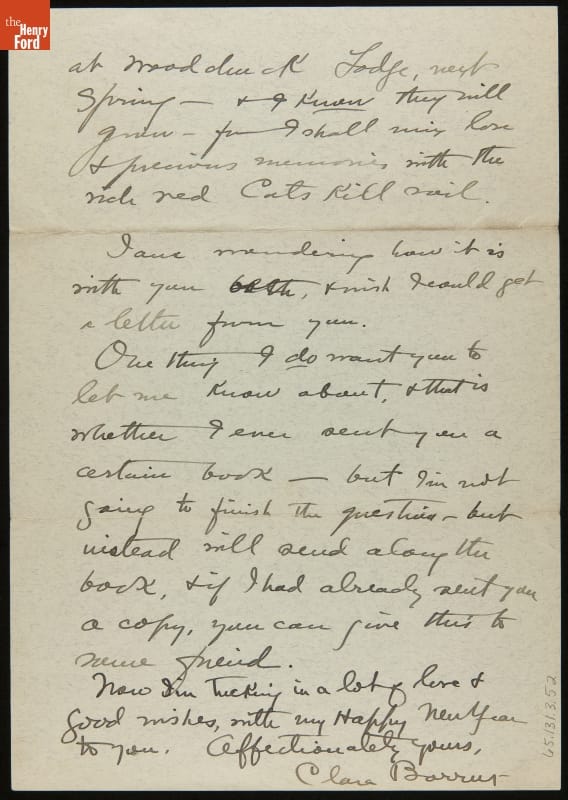 the
Henry
Ford
at Woodchuck Lodge, next
Spring — & I know they will
grow — for I shall mix love
& precious memories with the
rich red Catskill soil.
I am wondering how it is
with you both, & wish I could get
a letter from you.
One thing I do want you to
let me know about, & that is
whether I ever sent you a
certain book — but I'm not
going to finish the question — but
instead will send along the
book, & if I had already sent you
a copy, you can give this to
some friend.
Now I'm tucking in a lot of love &
good wishes, with my Happy New Year
to you. Affectionately yours,
Clara Barrus
65.131.3.52